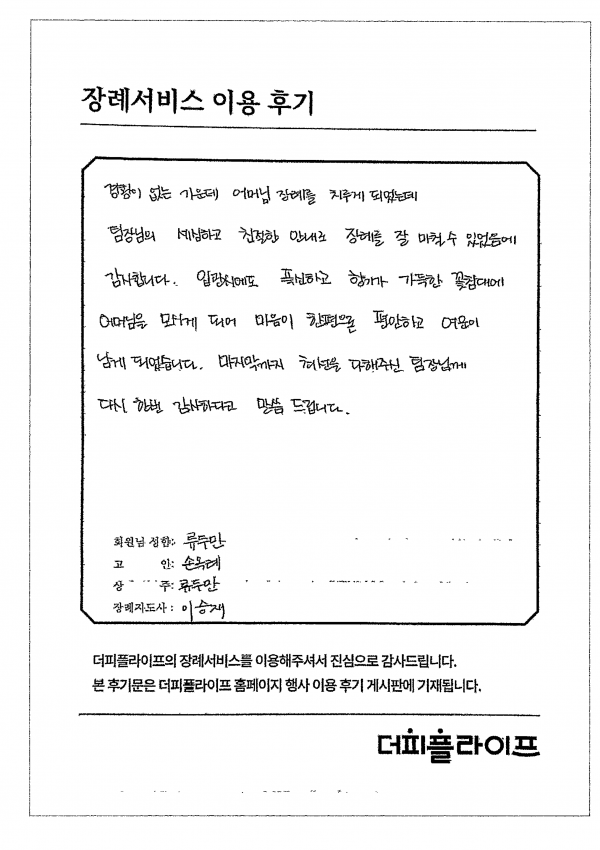 장례서비스 이용 후기
경황이 없는 가운데 어머님 장례를 치루게 되었는데
팀장님의 세심하고 친절한 안내로 장례를 잘 마칠 수 있었음에
감사합니다. 입관시에도 푹신하고 향기가 가득한 꽃침대에
어머님을 모시게 되어 마음이 한편으론 평안하고 여운이
남게 되었습니다. 마지막까지 최선을 다해주신 팀장님께
다시 한번 감사하다고 말씀 드립니다.
회원님 성함: 류두만
고 인: 손옥례
상 주: 류두만
장례지도사: 이승재
더피플라이프의 장례서비스를 이용해주셔서 진심으로 감사드립니다.
본 후기문은 더피플라이프 홈페이지 행사 이용 후기 게시판에 기재됩니다.
더피플라이프